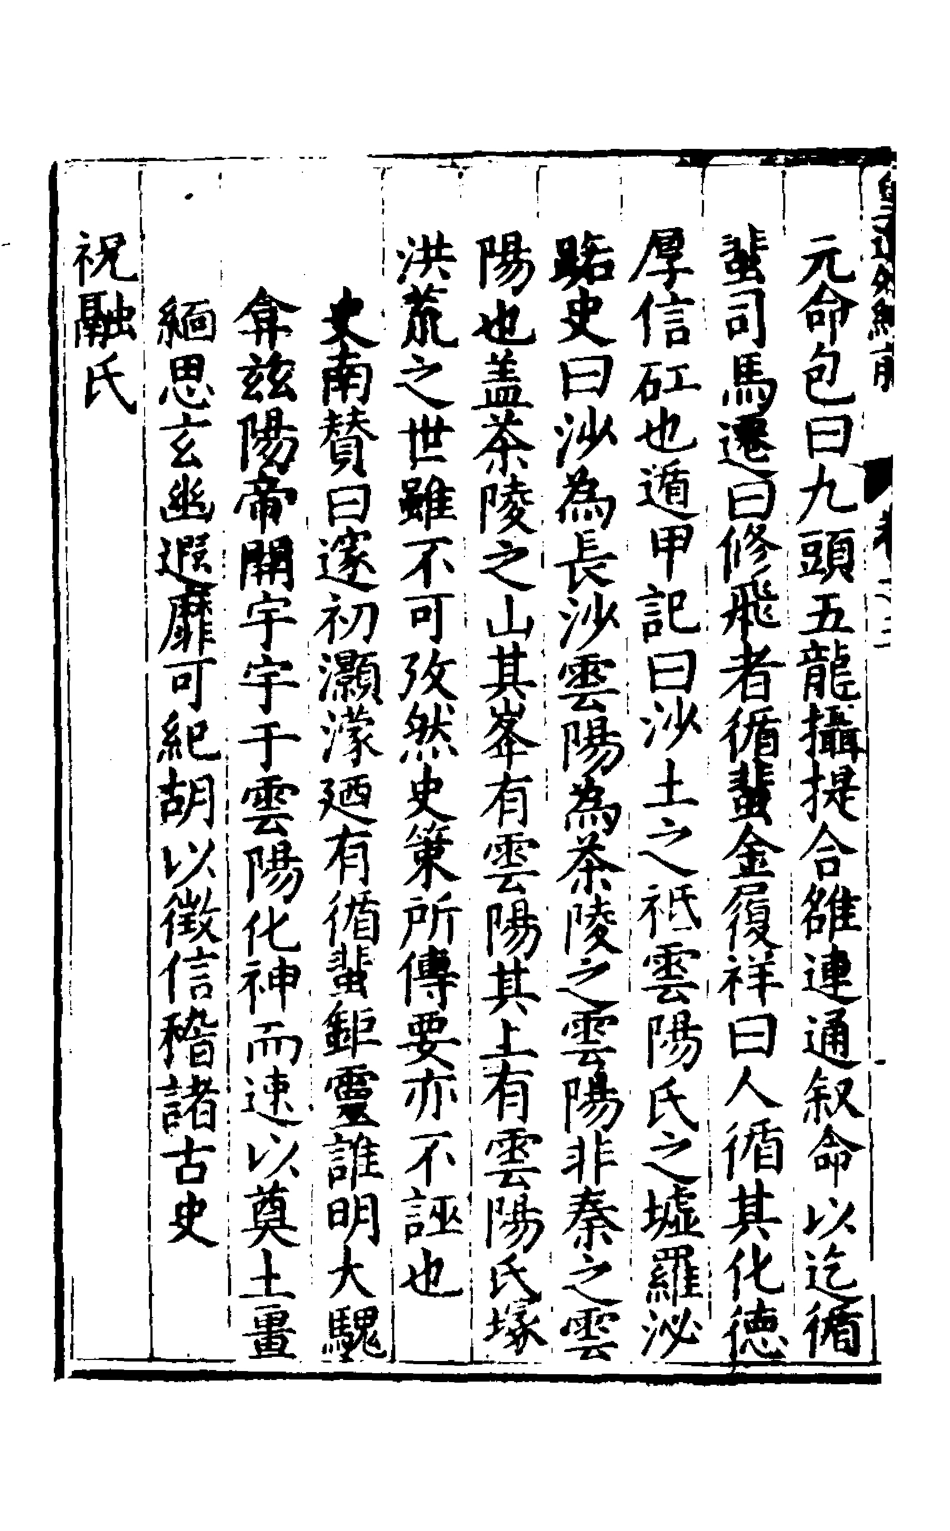 元命包曰九頭五龍攝提合雒連通叙命以迄循
蜚司馬遷曰修飛者循蜚金履祥曰人循其化德
厚信矼也遁甲記曰沙土之祇雲陽氏之墟羅泌
路史曰沙為長沙雲陽為茶陵之雲陽非秦之雲
陽也盖茶陵之山其峯有雲陽其上有雲陽氏塚
洪荒之世雖不可攷然史策所傳要亦不誣也
史南賛曰邃初灝濛廼有循蜚鉅靈誰明大騩
弇兹陽帝開宇宇于雲陽化神而速以奠土畫
緬思玄幽遐靡可紀胡以徵信稽諸古史
祝融氏